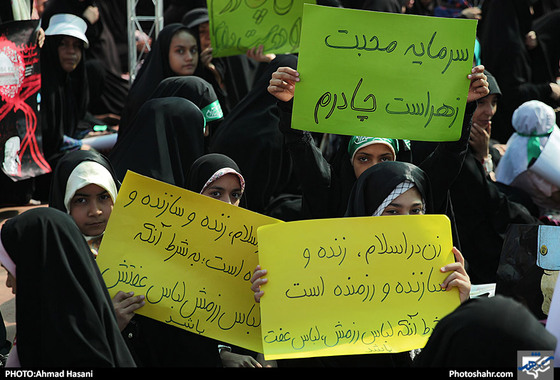 سرمایه محبت
زهراست چادرم
اسلام، زنده و سازنده و
است، به شرط آنکه
لباس رزمش لباس عفتش
باشد
زن در اسلام، زنده و
سازنده و رزمنده است
شرط آنکه لباس رزمش، لباس عفت
باشد
PHOTO:Ahmad Hasani
Photoshahr.com